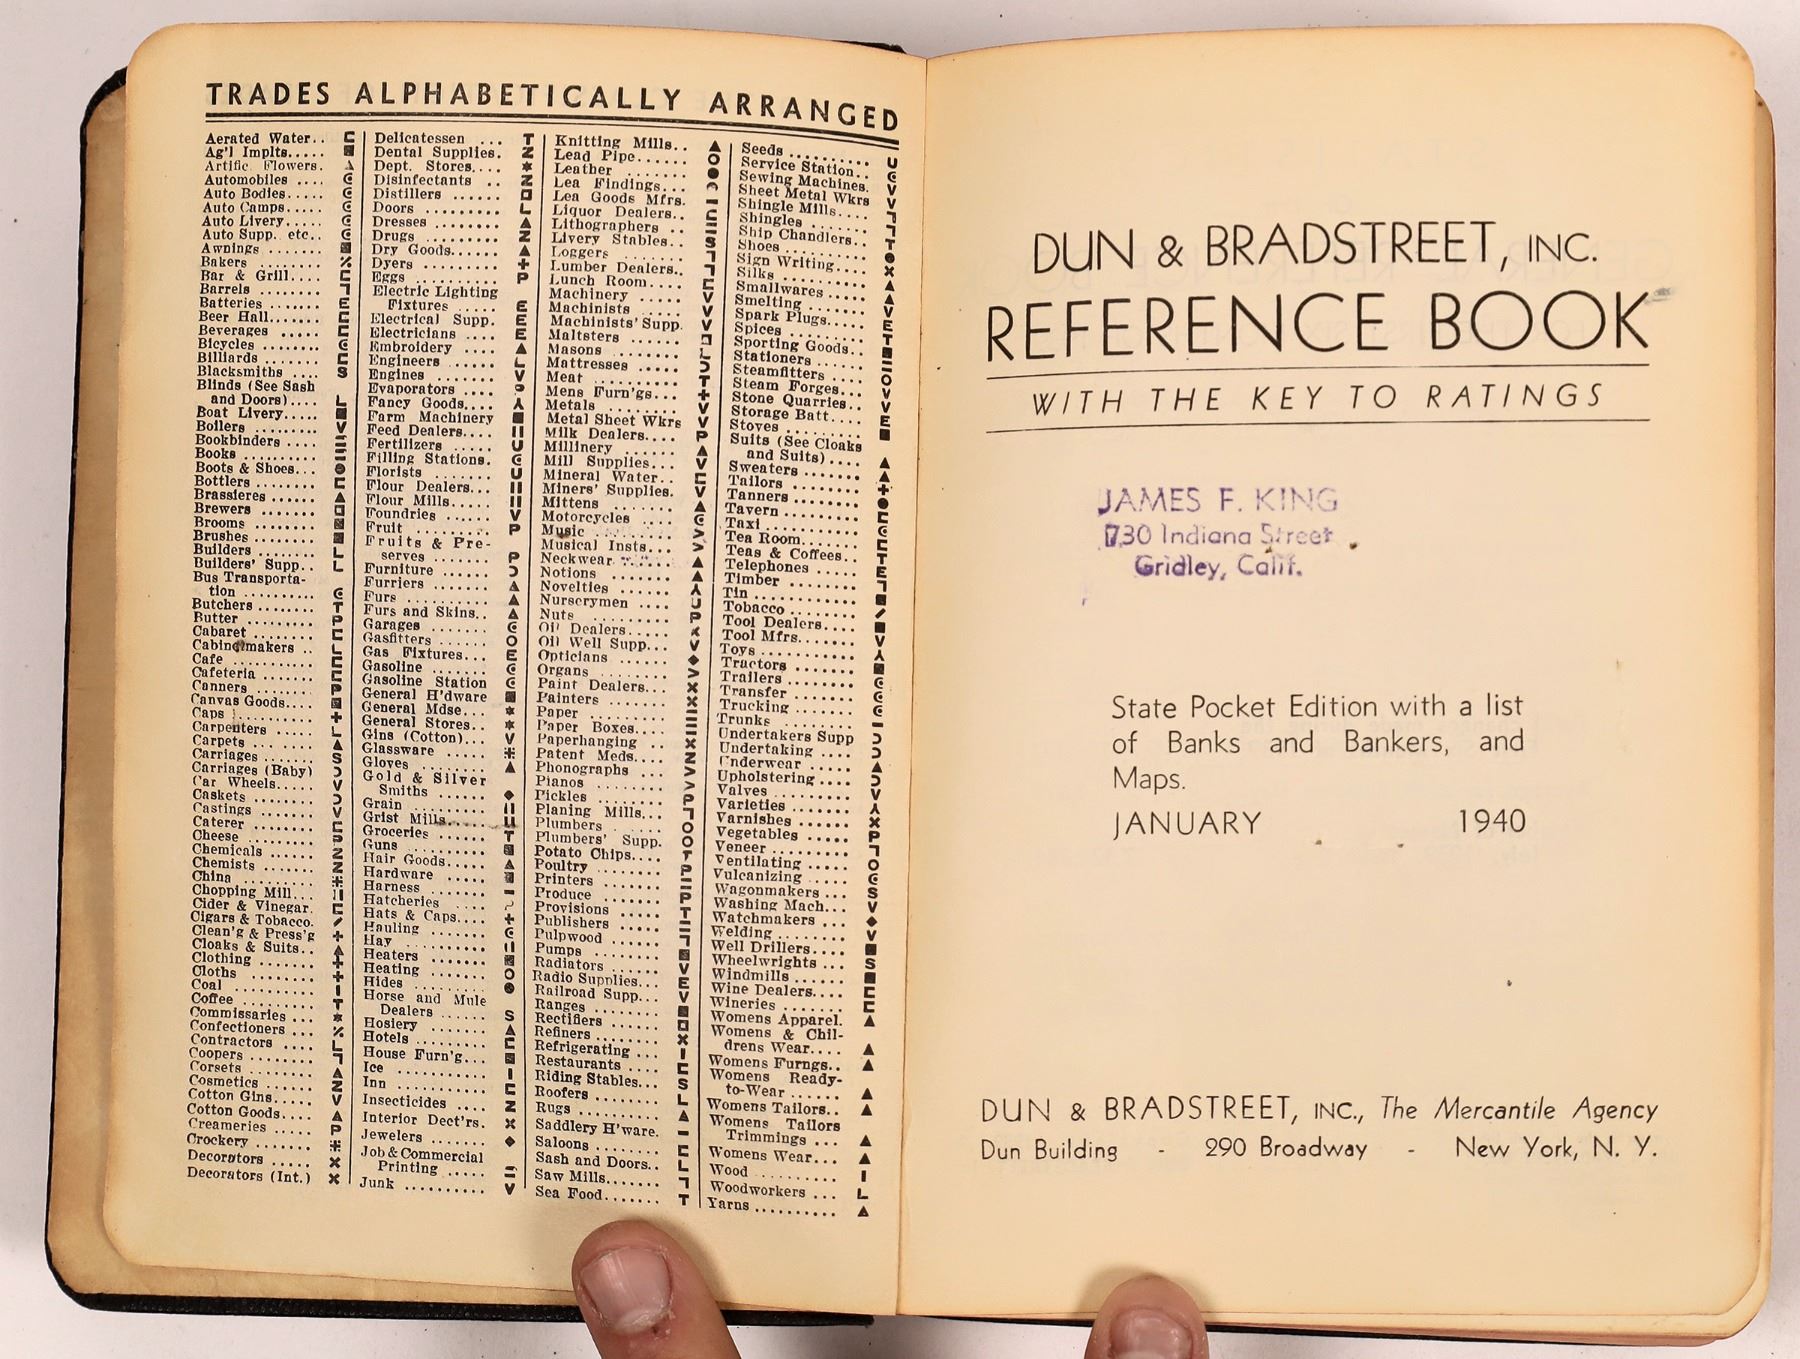 TRADES ALPHABETICALLY ARRANGED
Aerated Water..
Ag'l Implts.....
Artific. Flowers.
Automobiles ....
Auto Bodies.....
Auto Camps.....
Auto Livery.....
Auto Supp. etc..
Awnings ........
Bakers .........
Bar & Grill.....
Barrels ........
Batteries ......
Beer Hall.......
Beverages ......
Bicycles ........
Billiards ......
Blacksmiths ....
Blinds (See Sash
and Doors)....
Boat Livery.....
Boilers ........
Bookbinders ....
Books ..........
Boots & Shoes...
Bottlers ........
Brassieres ......
Brewers ........
Brooms .........
Brushes ........
Builders .......
Builders' Supp..
Bus Transporta-
tion ..........
Butchers ........
Butter ..........
Cabaret .........
Cabinetmakers ..
Cafe ............
Cafeteria ........
Canners .........
Canvas Goods....
Caps ............
Carpenters ......
Carpets .........
Carriages ........
Carriages (Baby)
Car Wheels.....
Caskets .........
Castings ........
Caterer .........
Cheese ..........
Chemicals .......
Chemists ........
China ...........
Chopping Mill...
Cider & Vinegar.
Cigars & Tobacco.
Clean'g & Press'g
Cloaks & Suits..
Clothing ........
Cloths ..........
Coal ............
Coffee ..........
Commissaries ...
Confectioners ...
Contractors .....
Coopers .........
Corsets .........
Cosmetics .......
Cotton Gins.....
Cotton Goods....
Creameries ......
Crockery ........
Decorators .....
Decorators (Int.)
Delicatessen ...
Dental Supplies.
Dept. Stores....
Disinfectants ..
Distillers ......
Doors ..........
Dresses ........
Drugs ..........
Dry Goods......
Dyers ..........
Eggs ...........
Electric Lighting
Fixtures .....
Electrical Supp.
Electricians ....
Embroidery ....
Engineers ......
Engines ........
Evaporators ....
Fancy Goods....
Farm Machinery
Feed Dealers....
Fertilizers ......
Filling Stations.
Florists ........
Flour Dealers...
Flour Mills.....
Foundries ......
Fruit ..........
Fruits & Pre-
serves ........
Furniture ......
Furriers ........
Furs ...........
Furs and Skins..
Garages ........
Gasfitters .......
Gas Fixtures...
Gasoline ........
Gasoline Station
General H'dware
General Mdse...
General Stores..
Gins (Cotton)...
Glassware ......
Gloves .........
Gold & Silver
Smiths .......
Grain ..........
Grist Mills.....
Groceries .......
Guns ...........
Hair Goods.....
Hardware ......
Harness ........
Hatcheries .....
Hats & Caps....
Hauling ........
Hay ............
Heaters ........
Heating ........
Hides ..........
Horse and Mule
Dealers ......
Hosiery ........
Hotels ..........
House Furn'g...
Ice .............
Inn .............
Insecticides ....
Interior Dect'rs.
Jewelers ........
Job & Commercial
Printing .....
Junk ..........
Knitting Mills..
Lead Pipe......
Leather ........
Lea Findings...
Lea Goods Mfrs.
Liquor Dealers..
Lithographers ..
Livery Stables..
Loggers ........
Lumber Dealers..
Lunch Room....
Machinery .....
Machinists .....
Machinists' Supp.
Maltsters ......
Masons ........
Mattresses .....
Meat ..........
Mens Furn'gs...
Metals .........
Metal Sheet Wkrs
Milk Dealers....
Millinery ......
Mill Supplies...
Mineral Water..
Miners' Supplies.
Mittens ........
Motorcycles ....
Music ..........
Musical Insts...
Neckwear ......
Notions ........
Novelties ......
Nurserymen ....
Nuts ...........
Oil Dealers.....
Oil Well Supp...
Opticians ......
Organs .........
Paint Dealers...
Painters ........
Paper ..........
Paper Boxes....
Paperhanging ..
Patent Meds....
Phonographs ...
Pianos .........
Pickles .........
Planing Mills...
Plumbers ......
Plumbers' Supp.
Potato Chips....
Poultry ........
Printers ........
Produce ........
Provisions .....
Publishers .....
Pulpwood ......
Pumps .........
Radiators ......
Radio Supplies..
Railroad Supp...
Ranges .........
Rectifiers ......
Refiners ........
Refrigerating ...
Restaurants ....
Riding Stables...
Roofers ........
Rugs ...........
Saddlery H'ware.
Saloons .........
Sash and Doors..
Saw Mills.......
Sea Food.......
Seeds ..........
Service Station..
Sewing Machines.
Sheet Metal Wkrs
Shingle Mills....
Shingles ........
Ship Chandlers..
Shoes ..........
Sign Writing....
Silks ...........
Smallwares .....
Smelting .......
Spark Plugs.....
Spices ..........
Sporting Goods..
Stationers ......
Steamfitters ....
Steam Forges...
Stone Quarries..
Storage Batt....
Stoves ..........
Suits (See Cloaks
and Suits)....
Sweaters .......
Tailors .........
Tanners ........
Tavern .........
Taxi ...........
Tea Room.......
Teas & Coffees..
Telephones .....
Timber .........
Tin .............
Tobacco ........
Tool Dealers....
Tool Mfrs.......
Toys ............
Tractors ........
Trailers ........
Transfer ........
Trucking .......
Trunks .........
Undertakers Supp
Undertaking ...
Underwear .....
Upholstering ...
Valves ..........
Varieties .......
Varnishes ......
Vegetables .....
Veneer .........
Ventilating .....
Vulcanizing ....
Wagonmakers ..
Washing Mach...
Watchmakers ...
Welding ........
Well Drillers....
Wheelwrights ...
Windmills ......
Wine Dealers....
Wineries ........
Womens Apparel.
Womens & Chil-
drens Wear....
Womens Furngs..
Womens Ready-
to-Wear ......
Womens Tailors..
Womens Tailors
Trimmings ...
Womens Wear...
Wood ..........
Woodworkers ...
Yarns ..........
DUN & BRADSTREET, INC.
REFERENCE BOOK
WITH THE KEY TO RATINGS
JAMES F. KING
730 Indiana Street
Gridley, Calif.
State Pocket Edition with a list
of Banks and Bankers, and
Maps.
JANUARY 1940
DUN & BRADSTREET, INC., The Mercantile Agency
Dun Building - 290 Broadway - New York, N. Y.